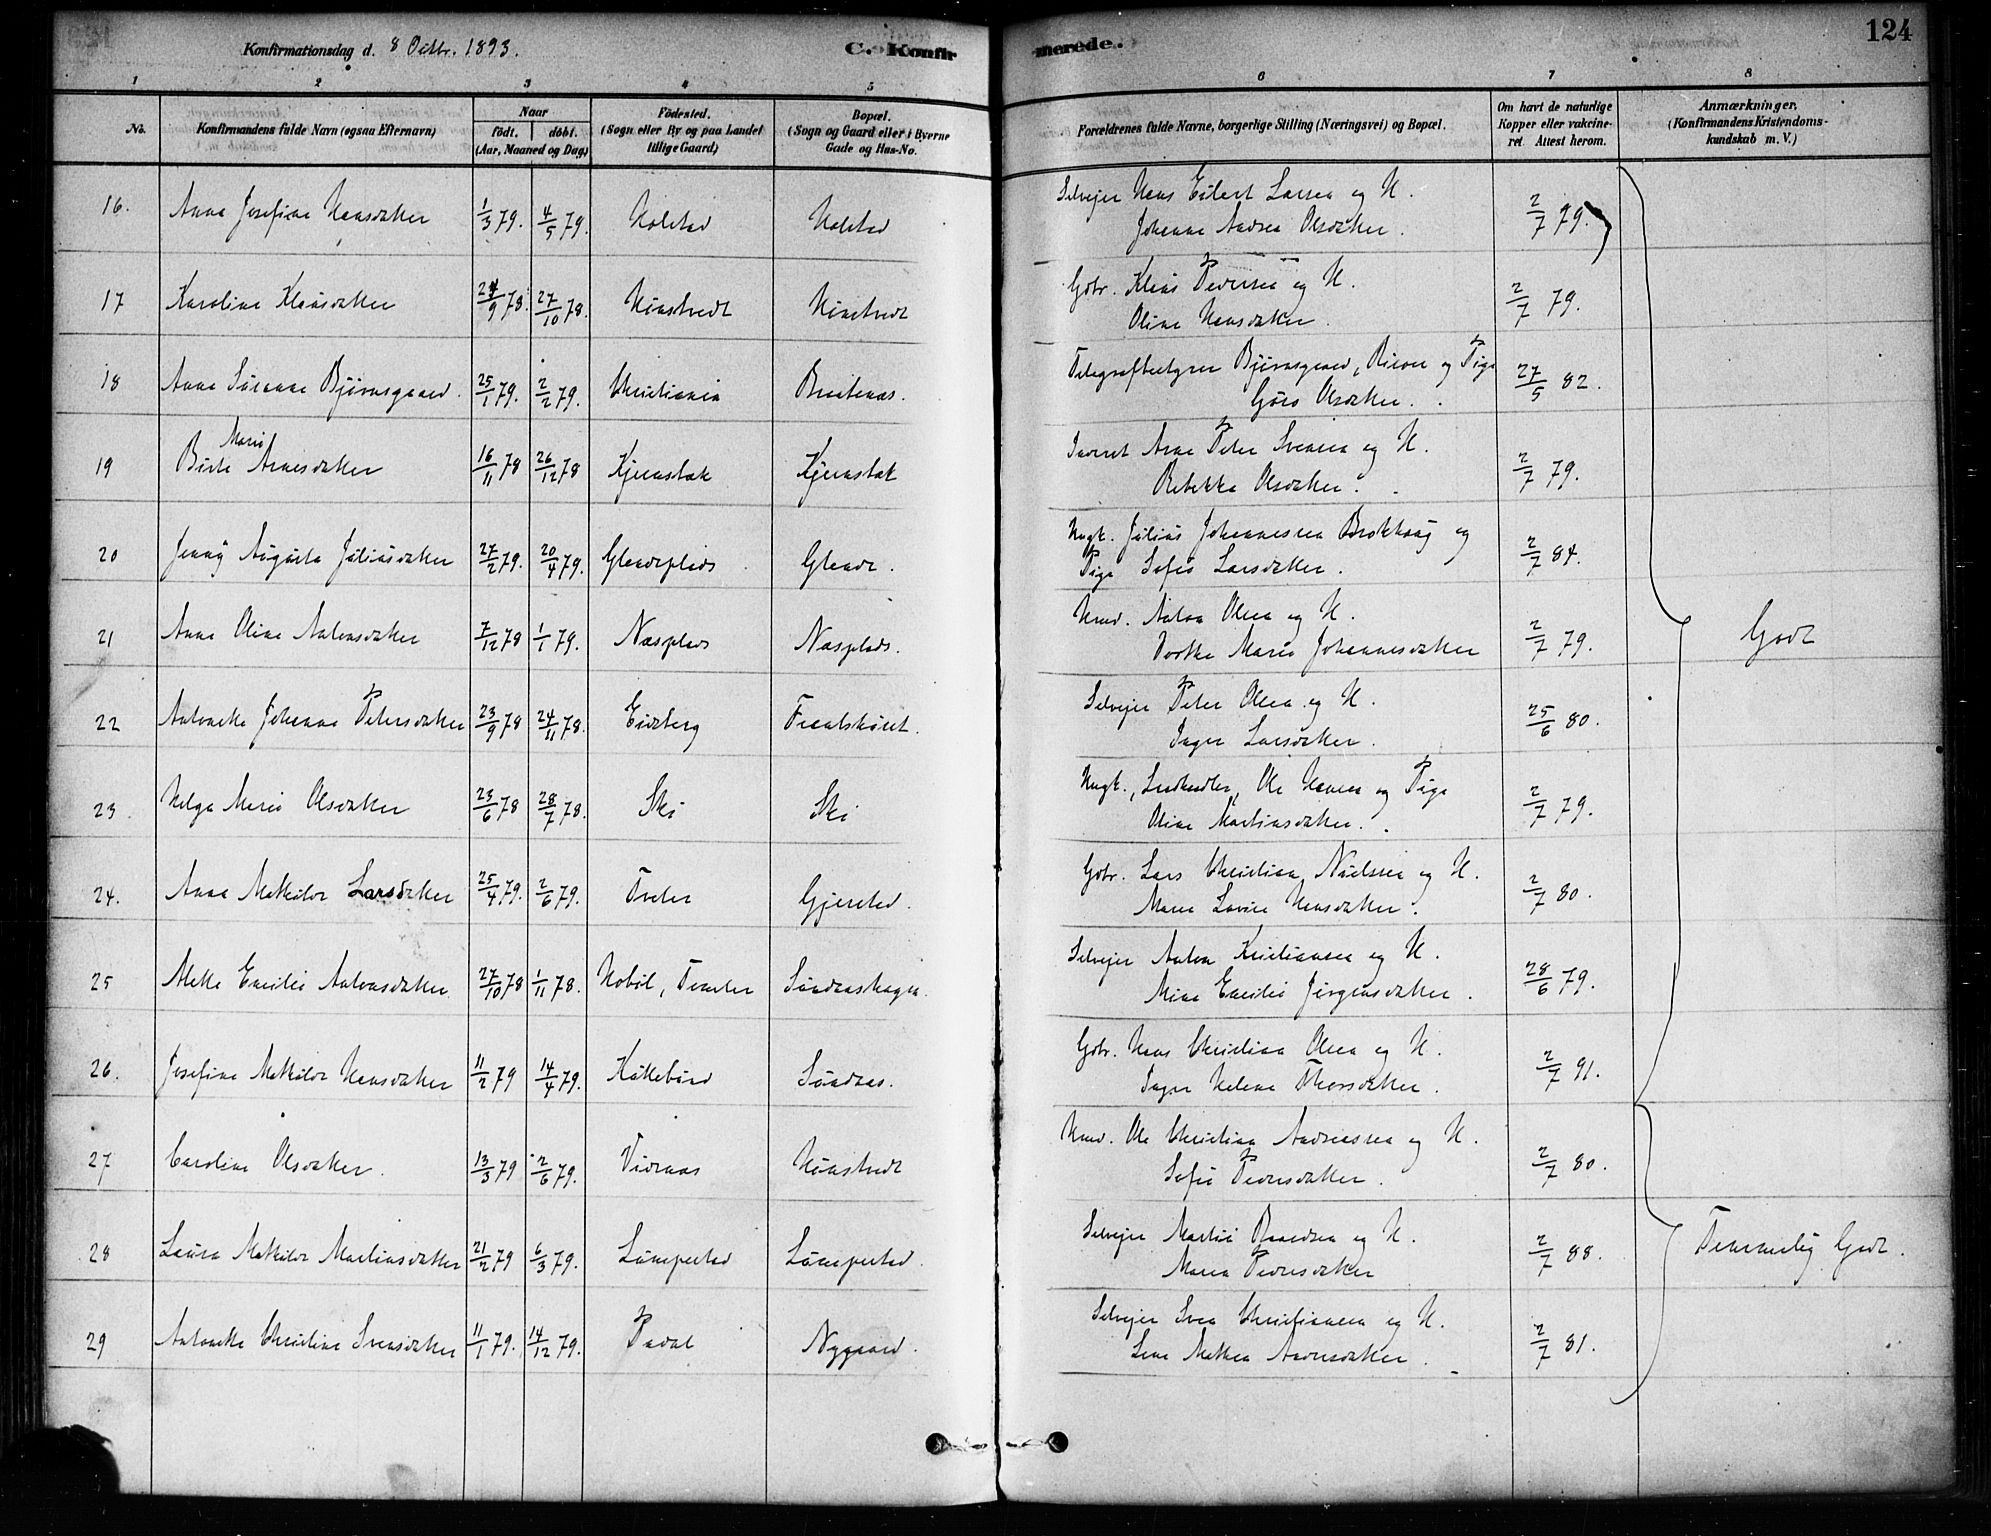 Konfirmationsdag d. 8 Octbr. 1893.
C. Konfirmerede.
124
1 2 3 4 5 6 7 8
No.
Konfirmandens fulde Navn (ogsaa Efternavn)
Naar
født. døbt.
(Aar, Maaned og Dag)
Fødested.
(Sogn eller By og paa Landet
tillige Gaard)
Bopæl.
(Sogn og Gaard eller i Byerne
Gade og Hus-No.
Forældrenes fulde Navne, borgerlige Stilling (Næringsvei) og Bopæl.
Om havt de naturlige
Kopper eller vakcine-
ret. Attest herom.
Anmærkninger,
(Konfirmandens Kristendoms-
kundskab m. V.)
16. Anna Josefine Hansdatter 1/3 79. 4/5 79. Holstad Holstad Selvejer Hans Eilert Larsen og H. 2/7 79.
Johanne Andrea Olsdatter.
17 Karoline Klausdatter 24/9 78. 27/10 78. Haustvedt Haustvedt Gbr. Klaus Pedersen og H. 2/7 79.
Oline Hansdatter.
18 Anna Bjørnsgaard. 25/1 79. 2/2 79. Christiania Telegrafbestyrer Bjørnsgaard, og Pige 27/5 82.
Olsdatter.
19 Marie
Birte Arnesdatter 16/11 78 26/12 78 Kjernstak Kjernstak Inderst Arne Peter Svensen og H. 2/7 79.
Rebekka Olsdatter.
20 Jenny Augusta Juliusdatter 27/2 79. 20/4 79. Gleneplads Glenne. Ungk. Julius Johannessen og 2/7 84.
Pige Sofie Larsdatter.
21 Anna Oline Antonsdatter 7/12 78 1/1 79. Næsplads Næsplads. Hmd. Anton Olsen og H. 2/7 79.
Dorthe Marie Johannesdatter
Godt
22 Antonette Johanne Petersdatter 23/9 78 24/11 78. Eidsberg Selvejer Peter Olsen og H. 25/6 80.
Inger Larsdatter.
23. Helga Marie Olsdatter 23/6 78 28/7 78. Ski Ski Ungk., Landhandler, Ole Hansen og Pige 2/7 79.
Oline Martinsdatter.
24. Anna Mathilde Larsdatter 25/4 79. 2/6 79. Tveter Gjerstad. Gbr. Lars Christian Nielsen og H. 2/7 80.
Maren Lovise Hansdatter.
25 Mette Emilie Antonsdatter 27/10 78 1/11 78. Hobøl, Tomter Søndrashagen. Selvejer Anton Kristiansen og H. 28/6 79.
Mina Emilie Jørgensdatter.
26. Josefine Mathilde Hansdatter 11/2 79 14/4 79. Søndraas. Gbr. Hans Christian Olsen og H. 2/7 91.
Inger Helene Thorsdatter.
27 Caroline Olsdatter. 13/3 79 2/6 79. Vidraas Haustvedt Hmd. Ole Christian Andreassen og H. 2/7 80.
Sofie Pedersdatter.
28 Laura Mathilde Martinsdatter 21/2 79 6/3 79. Lømperstad Lømperstad. Selvejer Martin og H. 2/7 88.
Maren Pedersdatter
Temmelig Godt.
29 Antonette Christine Svensdatter 11/1 79. 14/12 79. Nygaard. Selvejer Sven Christiansen og H. 2/7 81.
Lene Mathea Andersdatter.